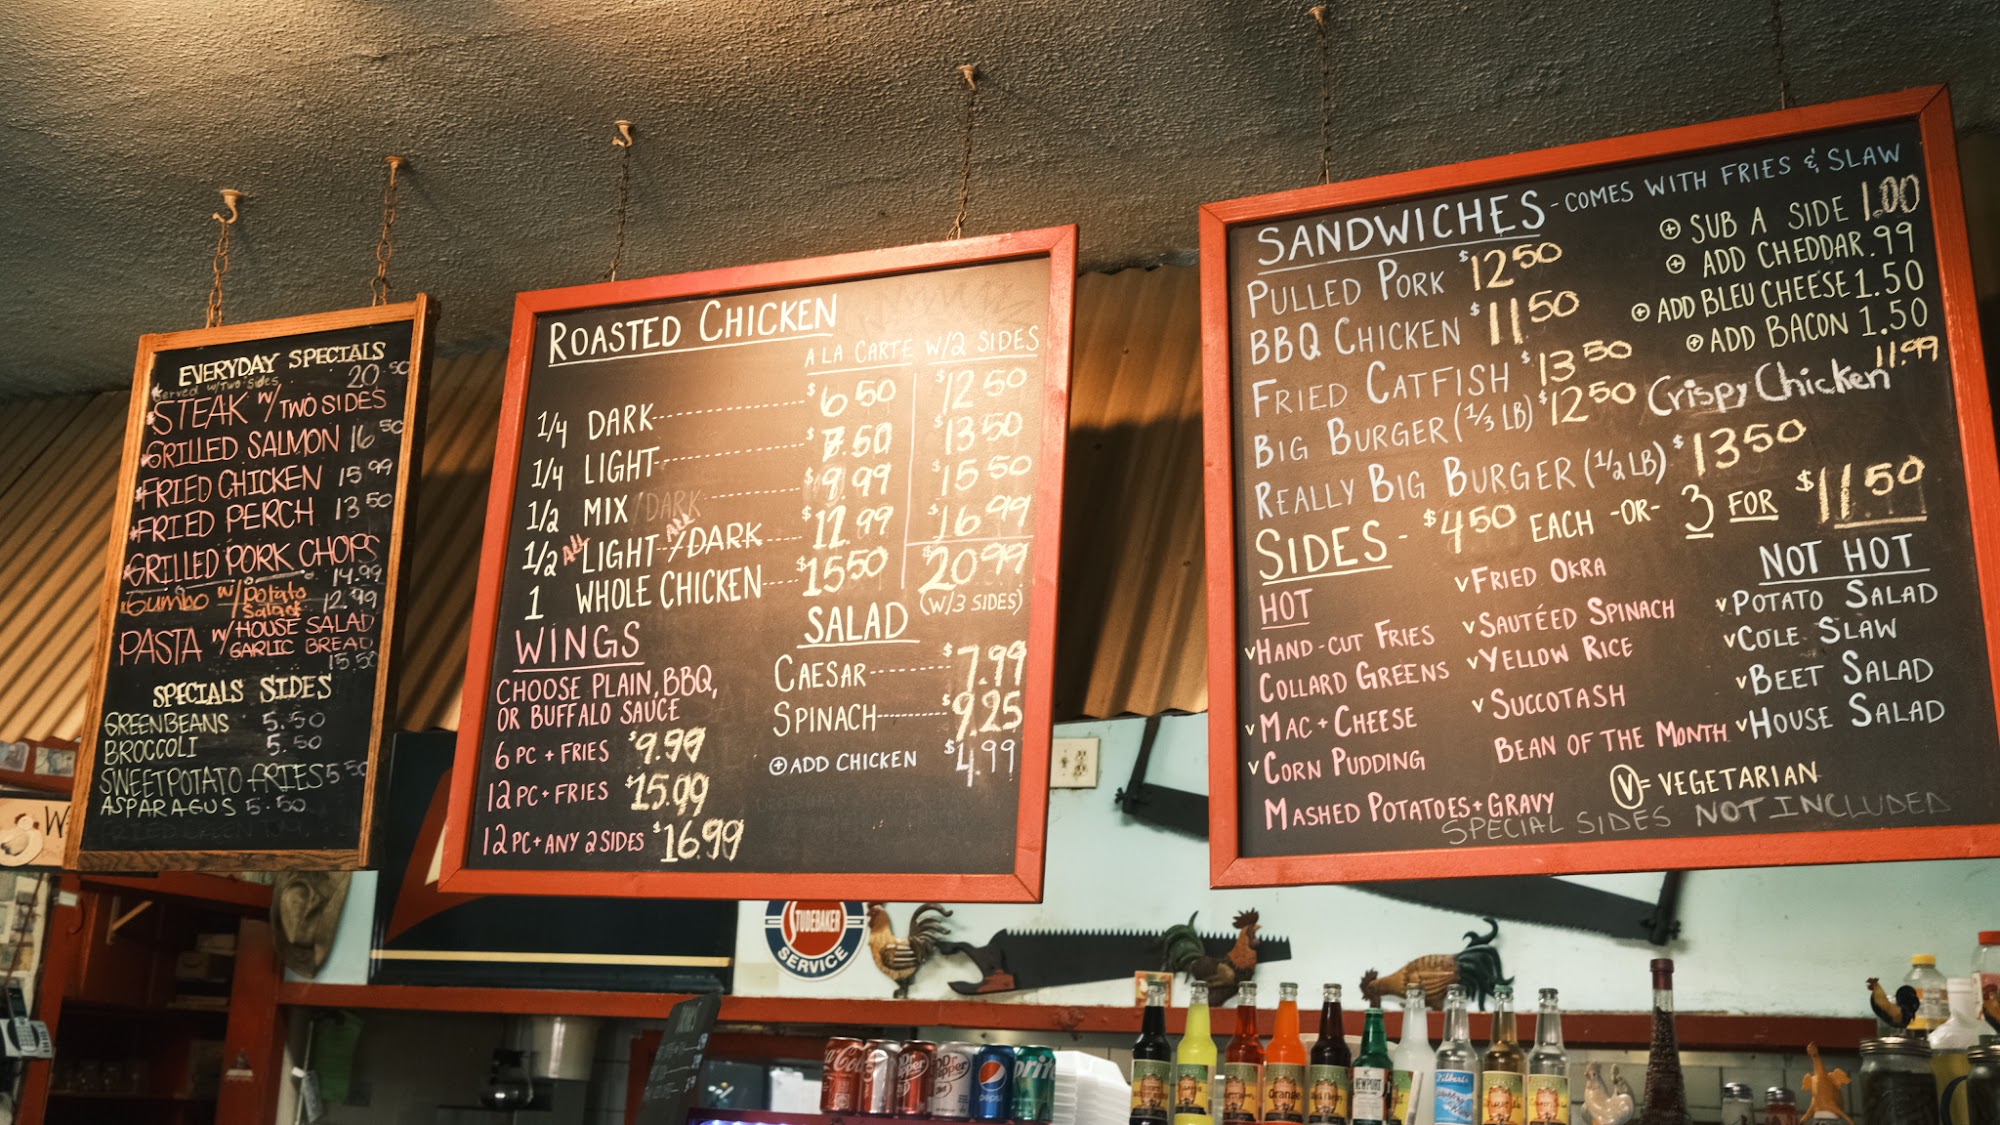 EVERYDAY SPECIALS
Served w/Two sides
STEAK w/ TWO SIDES 20.50
GRILLED SALMON 16.50
FRIED CHICKEN 15.99
FRIED PERCH 13.50
GRILLED PORK CHOPS 14.99
Gumbo w/ potato Salad 12.99
PASTA w/ HOUSE SALAD GARLIC BREAD 15.50
SPECIALS SIDES
GREENBEANS 5.50
BROCCOLI 5.50
SWEETPOTATO FRIES 5.50
ASPARAGUS 5.50
ROASTED CHICKEN
A LA CARTE W/2 SIDES
1/4 DARK $6.50 $12.50
1/4 LIGHT $7.50 $13.50
1/2 MIX/DARK $9.99 $15.50
1/2 All LIGHT/All DARK $11.99 $16.99
1 WHOLE CHICKEN $15.50 $20.99
(W/3 SIDES)
WINGS
CHOOSE PLAIN, BBQ,
OR BUFFALO SAUCE
6 PC + FRIES $9.99
12 PC + FRIES $15.99
12 PC + ANY 2 SIDES $16.99
SALAD
CAESAR $7.99
SPINACH $9.25
⊕ ADD CHICKEN $4.99
SANDWICHES - COMES WITH FRIES & SLAW
PULLED PORK $12.50
BBQ CHICKEN $11.50
FRIED CATFISH $13.50
BIG BURGER (1/3 LB) $12.50
REALLY BIG BURGER (1/2 LB) $13.50
⊕ SUB A SIDE 1.00
⊕ ADD CHEDDAR .99
⊕ ADD BLEU CHEESE 1.50
⊕ ADD BACON 1.50
Crispy Chicken 11.99
SIDES - $4.50 EACH -OR- 3 FOR $11.50
HOT
VHAND-CUT FRIES
COLLARD GREENS
VMAC + CHEESE
VCORN PUDDING
MASHED POTATOES + GRAVY
VFRIED OKRA
VSAUTÉED SPINACH
VYELLOW RICE
VSUCCOTASH
BEAN OF THE MONTH
NOT HOT
VPOTATO SALAD
VCOLE SLAW
VBEET SALAD
VHOUSE SALAD
V = VEGETARIAN
SPECIAL SIDES NOT INCLUDED
STUDEBAKER
SERVICE
W
Dr Pepper
pepsi
Orange
NEWPORT